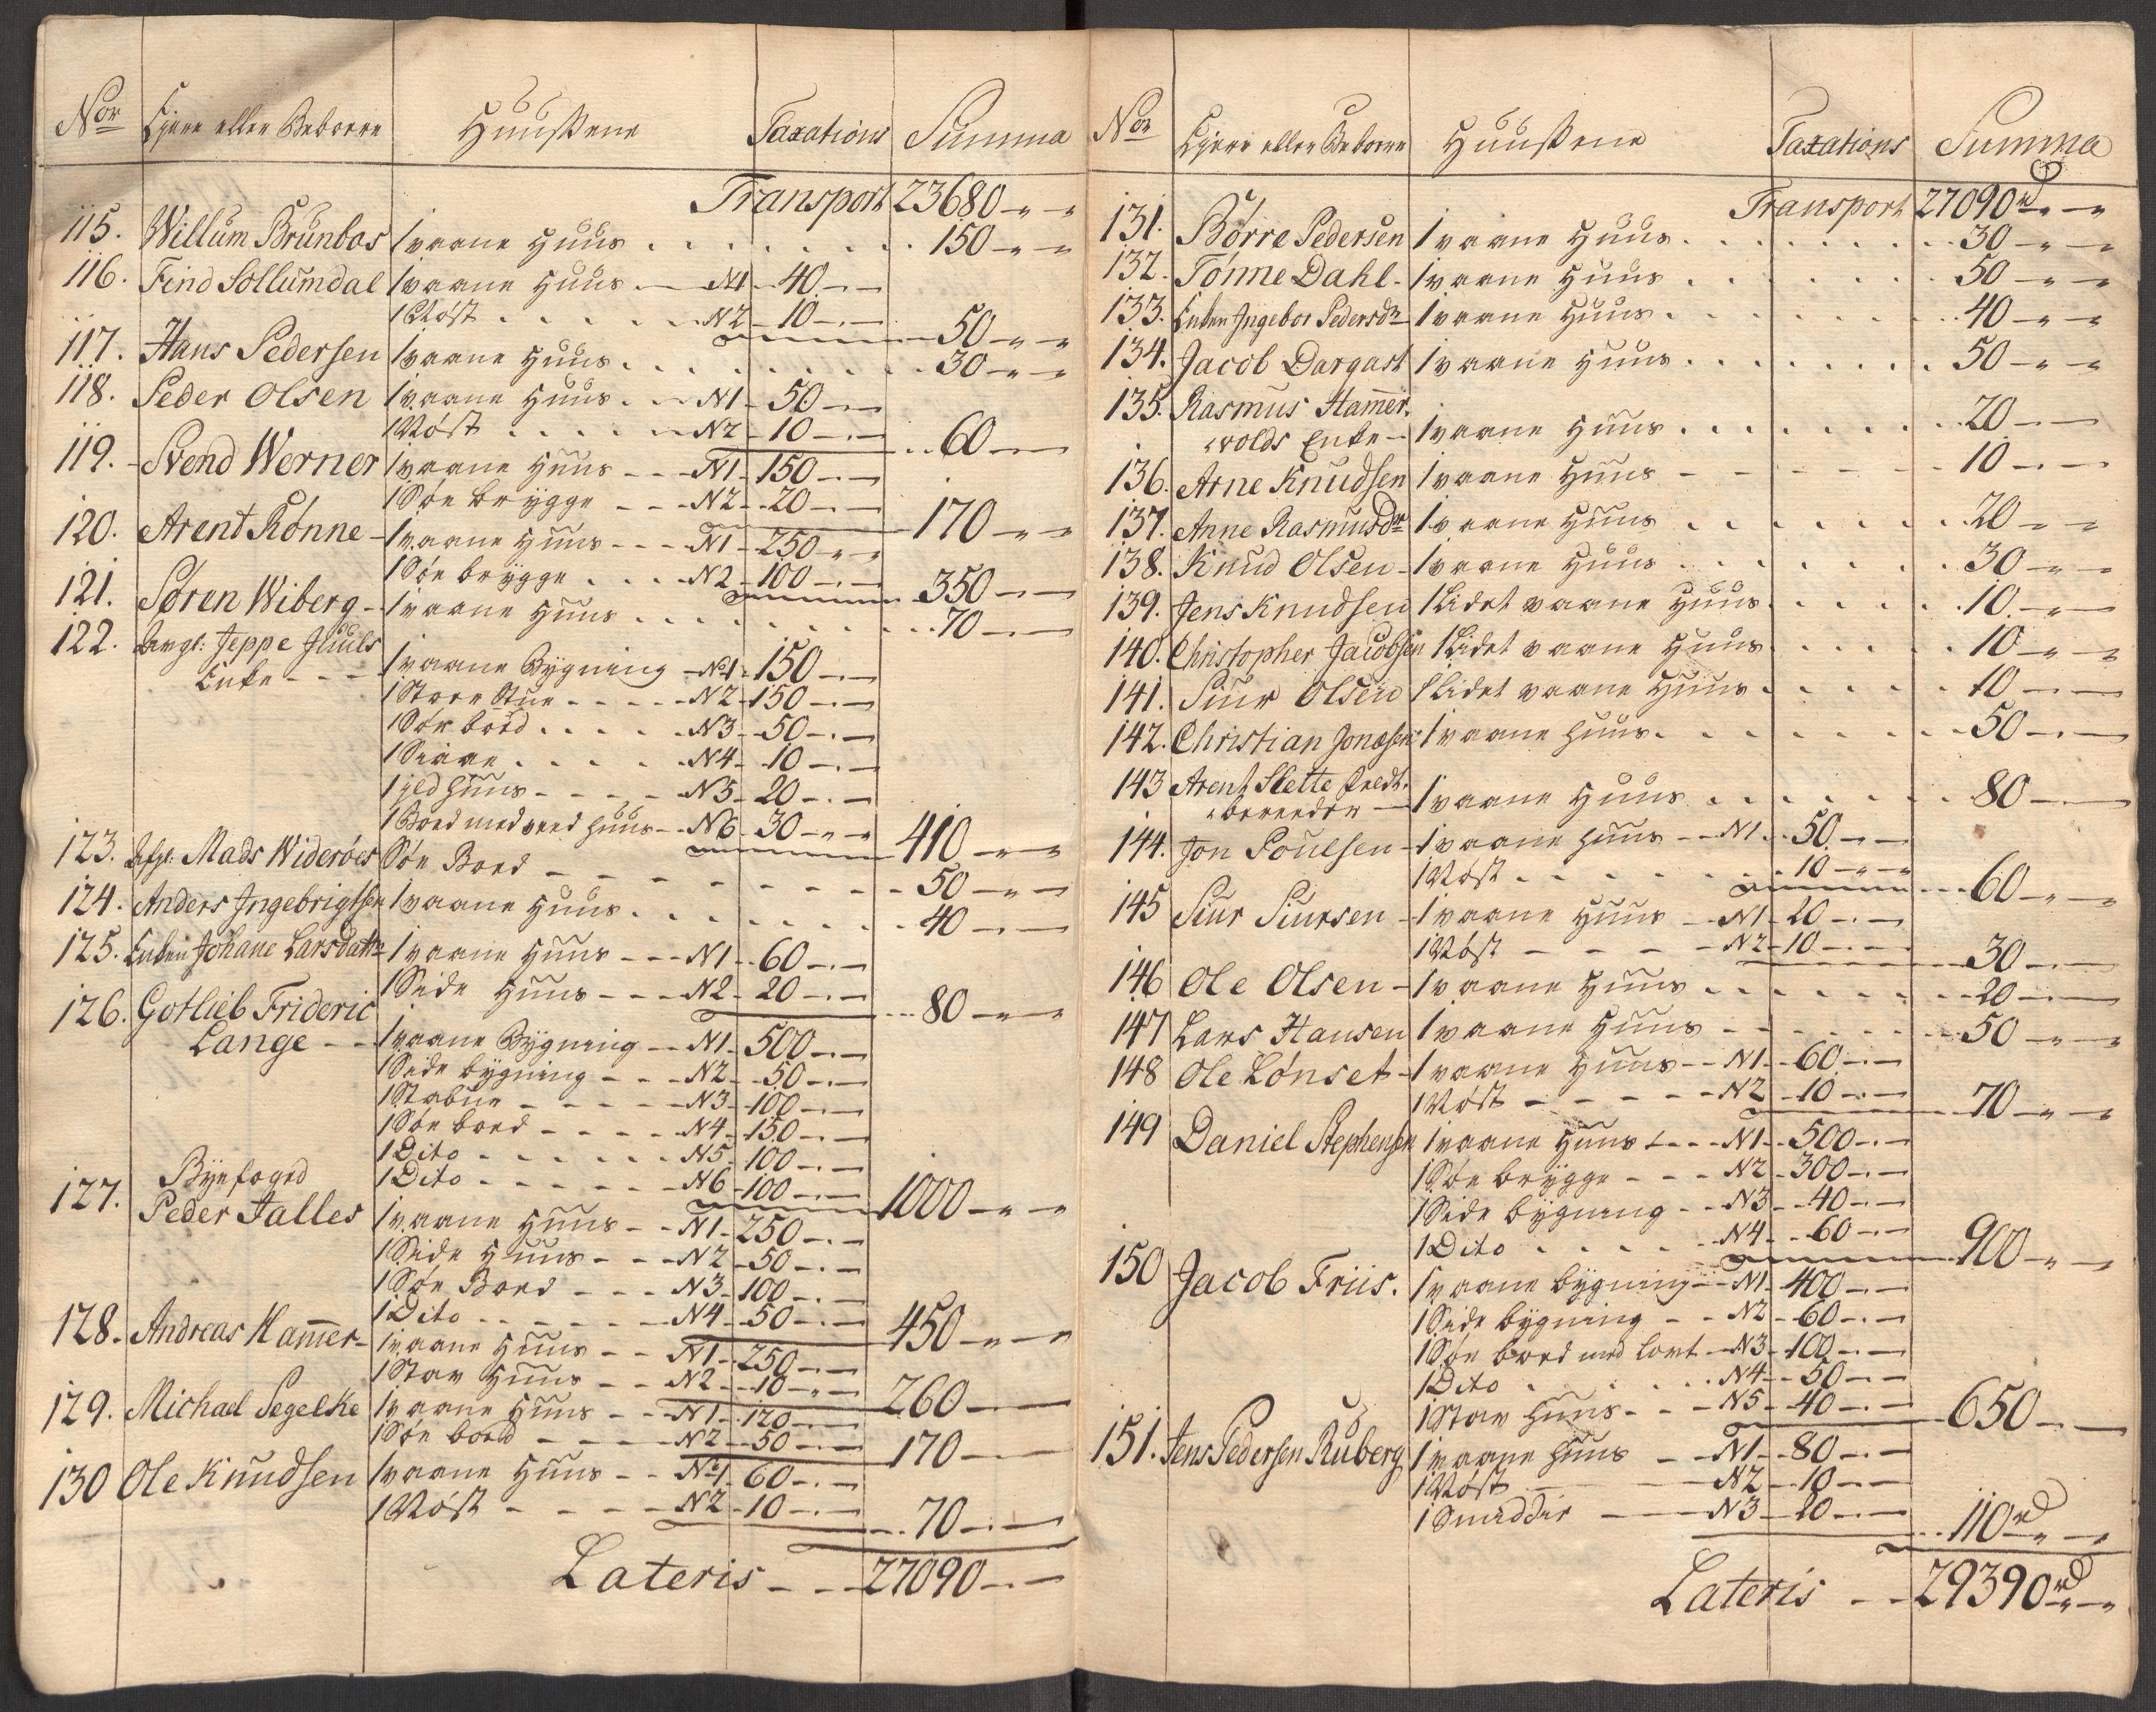 Nor Ejere eller Beboere Huußene Taxations Summa
Transport 23680 - „ -
115. Willum Brunbos 1 vaane Huus . . . . . . . 150 - „ -
116. Find Sollumdal 1 vaane Huus - N1 - 40 - „ -
1 Nøst . . . . N2 - 10 - „ - 50 - „ -
117. Hans Pedersen 1 vaane Huus . . . . . . . 30 - „ -
118. Peder Olsen 1 vaane Huus . - N1 - 50 - „ -
1 Nøst . . . . N2 - 10 - „ - 60 - „ -
119. Svend Werner 1 vaane Huus - - - N1 - 150 - „ -
1 Søe brygge - - - N2 - 20 - „ - 170 - „ -
120. Arent Rønne - 1 vaane Huus - - - N1 - 250 - „ -
1 Søe brygge . . . N2 - 100 - „ - 350 - „ -
121. Søren Wiberg - 1 vaane Huus . . . . . . . 70 - „ -
122. Jeppe Juuls
Enke - - - 1 vaane Bygning - N1 - 150 - „ -
1 Store Stue - - - - N2 - 150 - „ -
1 Søe boed . . . . N3 - 50 - „ -
1 . . . . N4 - 10 - „ -
1 jld Huus - - - - N5 - 20 - „ -
1 Boed med veed Huus - - N6 - 30 - „ - 410 - „ -
123. Mads Widerøes Søe Boed - - - - - - - 50 - „ -
124. Anders Jngebrigtsen 1 vaane Huus . . . . . . . 40 - „ -
125. Enken Johane Larsdatr 1 vaane Huus - - - N1 - 60 - „ -
1 Side Huus - - - N2 - 20 - „ - 80 - „ -
126. Gotlieb Frideric
Lange - - 1 vaane Bygning - - N1 - 500 - „ -
1 Side bygning - - - N2 - 50 - „ -
1 Stabue - - - - - N3 - 100 - „ -
1 Søe boed - - - - N4 - 150 - „ -
1 Dito - - - - - N5 - 100 - „ -
1 Dito - - - - - N6 - 100 - „ - 1000 - „ -
Byefoged
127. Peder Jalles 1 vaane Huus - - N1 - 250 - „ -
1 Side Huus - - - N2 - 50 - „ -
1 Søe Boed - - - N3 - 100 - „ -
1 Dito - - - - - N4 - 50 - „ - 450 - „ -
128. Andreas Ham̄er - 1 vaane Huus - - N1 - 250 - „ -
1 Stav Huus - - N2 - 10 - „ - 260 - „ -
129. Michael Segelke 1 vaane Huus - - N1 - 120 - „ -
1 Søe boed - - - - N2 - 50 - „ - 170 - „ -
130 Ole Knudsen 1 vaane Huus - - No1 - 60 - „ -
1 Nøst - - - - N2 - 10 - „ - 70 - „ -
Lateris - - - 27090 - „ -
Nor Ejere eller Beboere Huußene Taxations Summa
Transport 27090 rd „ -
131. Børre Pedersen 1 vaane Huus . . . . . . . 30 - „ -
132. Tønne Dahl - 1 vaane Huus . . . . . . . 50 - „ -
133. Enken Jngebor Pedersdr 1 vaane Huus . . . . . . . 40 - „ -
134. Jacob Dargast 1 vaane Huus . . . . . . . 50 - „ -
135. Rasmus Ham̄er,
wolds Enke - 1 vaane Huus . . . . . . . 20 - „ -
136. Arne Knudsen 1 vaane Huus - - - - - - 10 - „ -
137. Anne Rasmusdr 1 vaane Huus . . . . . . . 20 - „ -
138. Knud Olsen - 1 vaane Huus . . . . . . . 30 - „ -
139. Jens Knudsen 1 Lidet vaane Huus . . . . . 10 - „ -
140. Christopher Jacobsen 1 Lidet vaane Huus . . . . . 10 - „ -
141. Siur Olsen 1 Lidet vaane Huus . . . . . 10 - „ -
142. Christian Jonæsen 1 vaane Huus . . . . . . . 50 - „ -
143 Arent Slette
bereeder - 1 vaane Huus . . . . . . . 80 - „ -
144. Jon Poulsen - 1 vaane Huus - - N1 - 50 - „ -
1 Nøst . . . . . 10 - „ - 60 - „ -
145 Siur Siursen - 1 vaane Huus - - N1 - 20 - „ -
1 Nøst - - - - N2 - 10 - „ - 30 - „ -
146 Ole Olsen - 1 vaane Huus . . . . . . . 20 - „ -
147 Lars Hansen 1 vaane Huus - - - - - - 50 - „ -
148 Ole Lønset - 1 vaane Huus - - N1 - 60 - „ -
1 Nøst - - - - N2 - 10 - „ - 70 - „ -
149 Daniel Stephensen 1 vaane Huus - - - N1 - 500 - „ -
1 Søe brygge - - - N2 - 300 - „ -
1 Side bygning - - N3 - 40 - „ -
1 Dito . . . . N4 - 60 - „ - 900 - „ -
150 Jacob Friis. 1 vaane bygning - N1 - 400 - „ -
1 Side bygning - - N2 - 60 - „ -
1 Søe boed med - N3 - 100 - „ -
1 Dito . . . . N4 - 50 - „ -
1 Stav Huus - - - N5 - 40 - „ - 650 - „ -
151. Jens Pedersen Ruberg 1 vaane Huus - - N1 - 80 - „ -
1 Nøst - - - - N2 - 10 - „ -
1 Smiddie - - - N3 - 20 - „ - 110 rd „ -
Lateris - - 29390 rd „ -